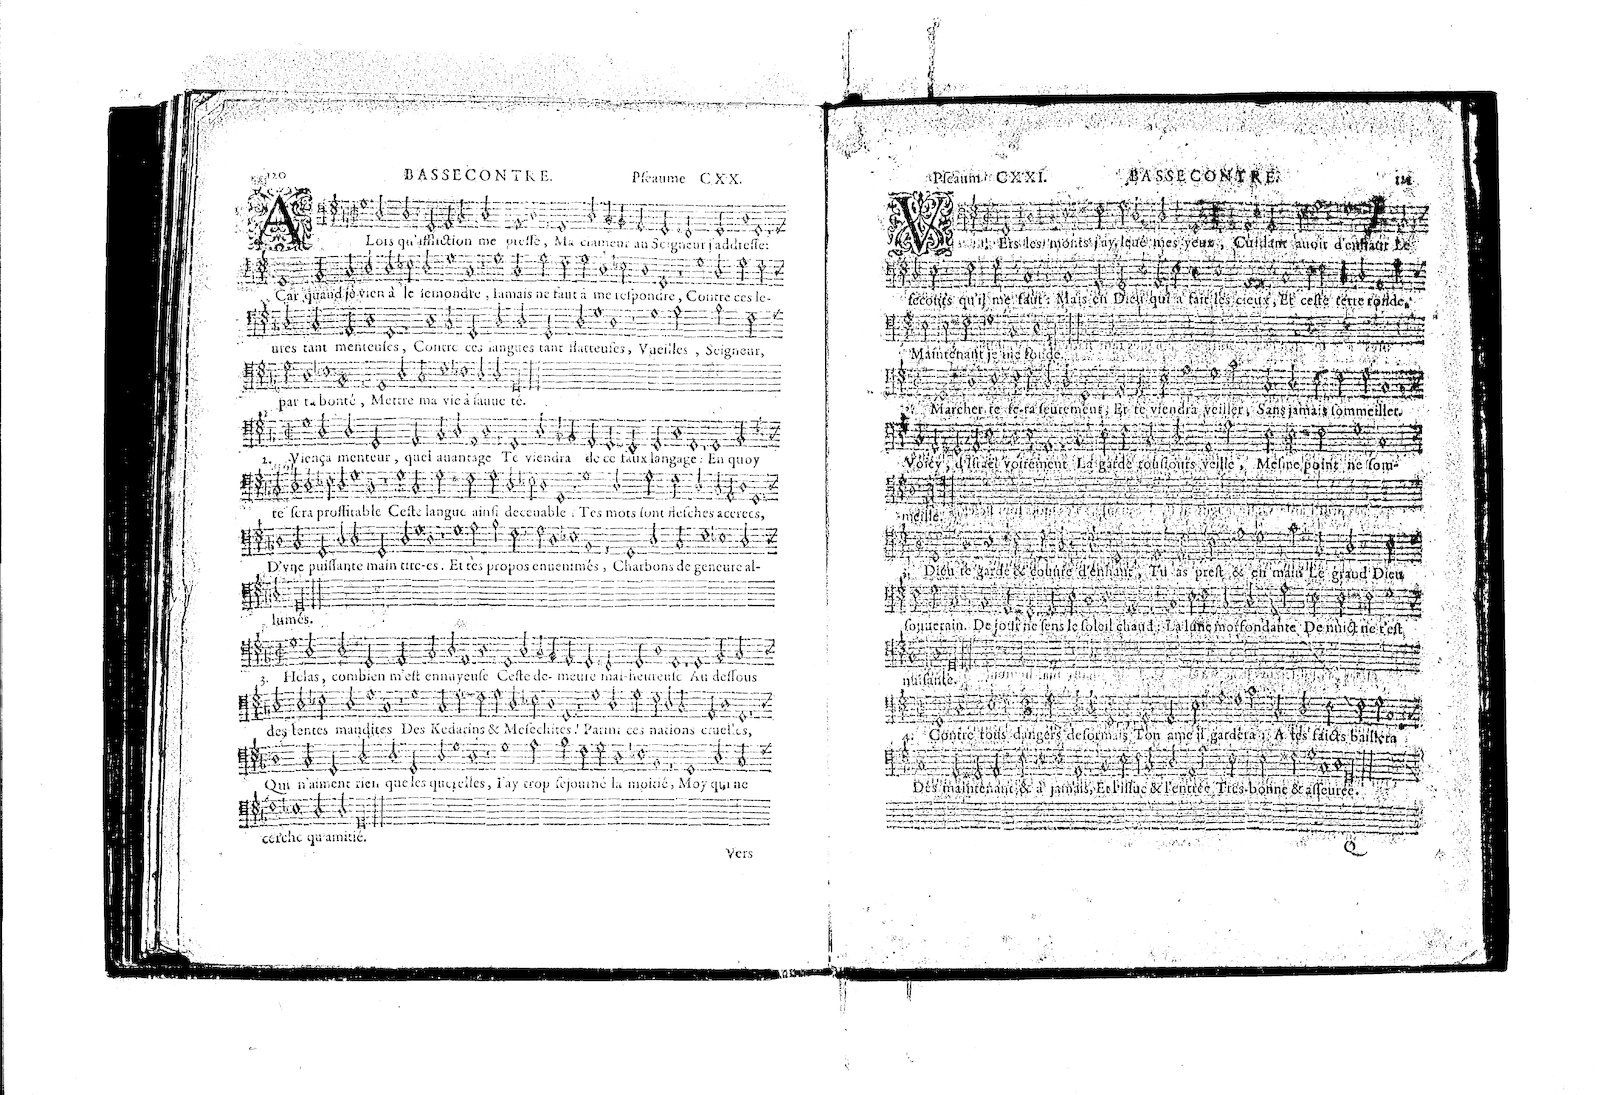 120 BASSECONTRE. Pſeaume CXX.
A Lors qu'affliction me preſſe, Ma clameur au Seigneur j'addreſſe:
Car quand je vien à le ſemondre, Iamais ne faut à me reſpondre, Contre ces le-
ures tant menteuſes, Contre ces langues tant flatteuſes, Vueilles, Seigneur,
par ta bonté, Mettre ma vie à ſauue té.
2. Viença menteur, quel auantage Te viendra de ce faux langage: En quoy
te ſera proffitable Ceſte langue ainſi deceuable: Tes mots ſont fleſches acerees,
D'vne puiſſante main tire-es. Et tes propos enuenimés, Charbons de geneure al-
lumés.
3. Helas, combien m'eſt ennuyeuſe Ceſte de- meure mal-heureuſe Au deſſous
des tentes maudites Des Kedarins & Meſechites! Parmi ces nations cruelles,
Qui n'aiment rien que les querelles, I'ay trop ſejourné la moitié, Moy qui ne
cerche qu'amitié.
Vers
Pſeaum CXXI. BASSECONTRE. 121
VErs les monts j'ay leué mes yeux, Cuidant auoir d'enhaut Le
ſecours qu'il me faut: Mais en Dieu qui a fait les cieux, Et ceſte terre ronde,
Maintenant je me fonde.
2. Marcher te fe-ra ſeurement, Et te viendra veiller, Sans jamais ſommeiller.
Voicy, d'Iſrael voirement La garde touſiours veille, Meſme point ne ſom-
meille.
3. Dieu te garde & couure d'enhaut, Tu as preſt & en main Le grand Dieu
ſouuerain. De jour ne ſens le ſoleil chaud: La lune morfondante De nuict ne t'eſt
nuiſante.
4. Contre tous dangers deſormais Ton ame il gardera: A tes faicts baillera
Dés maintenant & à jamais, Et l'iſſue & l'entrée Tres-bonne & aſſeurée.
Q